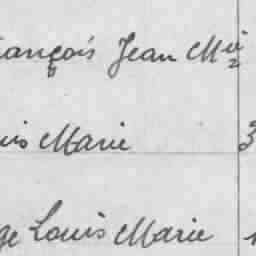 rançois Jean Mie
uis Marie 3
ge Louis Marie